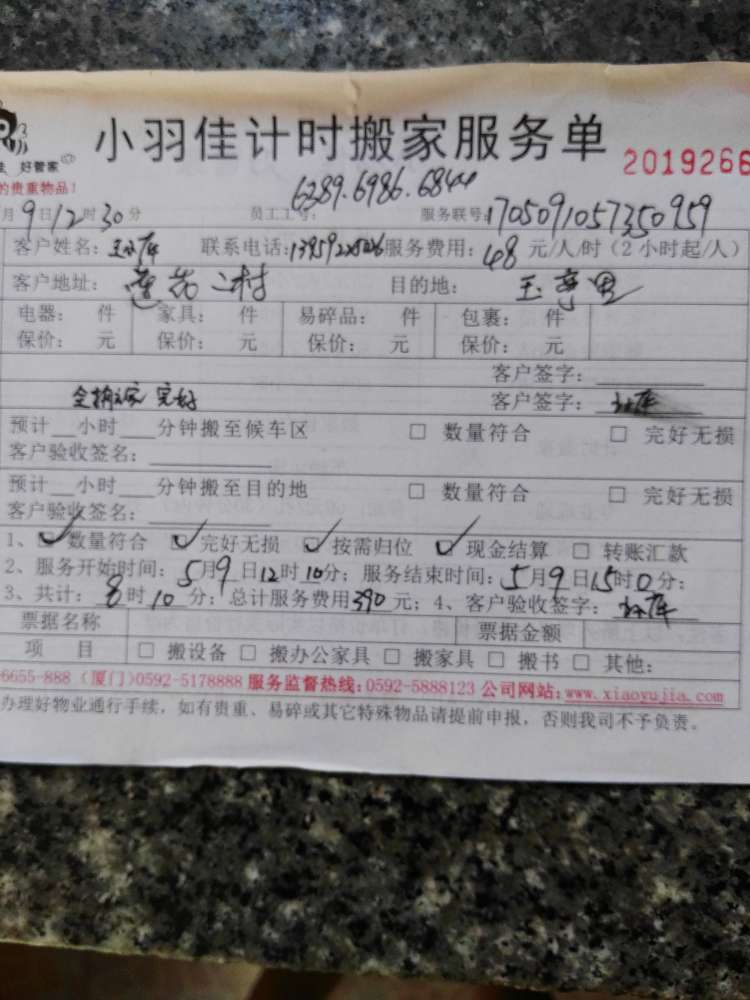 小羽佳计时搬家服务单
好管家
2019266
的贵重物品！
6289.6986.6844
月9日12时30分 员工工号： 服务联号：170509105735 0959
客户姓名： 联系电话： 服务费用：48元/人/时（2小时起/人）
客户地址：莲花二村 目的地：玉亭里
电器： 件 家具： 件 易碎品： 件 包裹： 件
保价： 元 保价： 元 保价： 元 保价： 元
客户签字：
完好 客户签字：
预计__小时___分钟搬至候车区 □ 数量符合 □ 完好无损
客户验收签名：
预计__小时___分钟搬至目的地 □ 数量符合 □ 完好无损
客户验收签名：
1、☑数量符合 ☑完好无损 ☑按需归位 ☑现金结算 □ 转账汇款
2、服务开始时间：5月9日12时10分；服务结束时间：5月9日15时0分；
3、共计：8时10分；总计服务费用390元；4、客户验收签字：
票据名称 票据金额
项 目 □ 搬设备 □ 搬办公家具 □ 搬家具 □ 搬书 □ 其他：
6655-888（厦门）0592-5178888 服务监督热线：0592-5888123 公司网站：www.xiaoyujia.com
办理好物业通行手续，如有贵重、易碎或其它特殊物品请提前申报，否则我司不予负责。